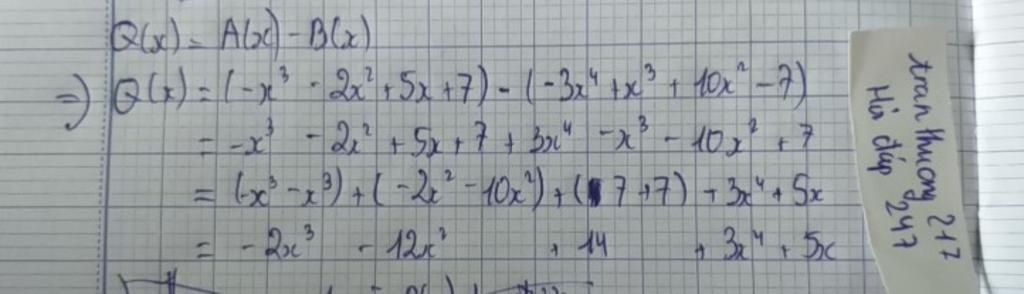 Q(x) = A(x) - B(x)
=> Q(x) = (-x³ - 2x² + 5x + 7) - (-3x⁴ + x³ + 10x² - 7)
= -x³ - 2x² + 5x + 7 + 3x⁴ - x³ - 10x² + 7
= (-x³ - x³) + (-2x² - 10x²) + (7 + 7) + 3x⁴ + 5x
= -2x³ - 12x² + 14 + 3x⁴ + 5x
tran thuong 217
Hỏi đáp 247